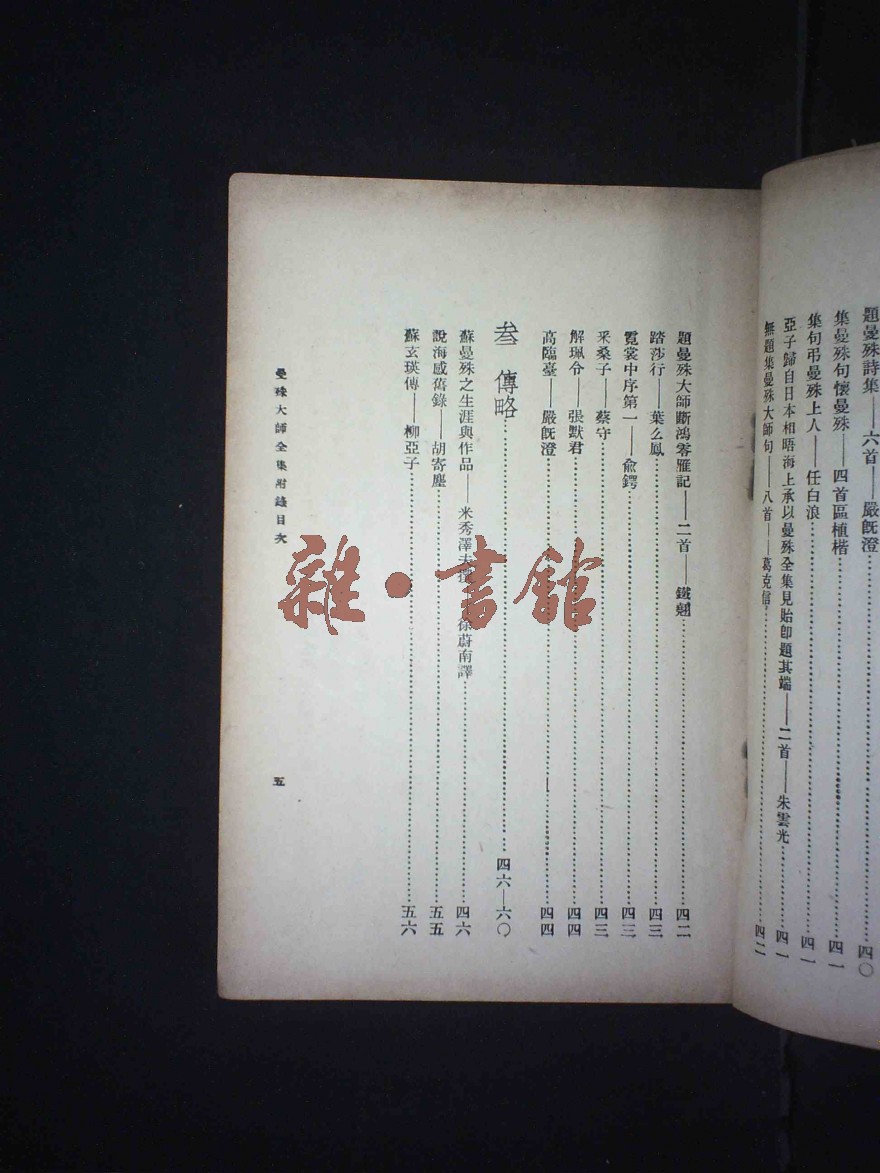 題曼殊詩集——六首——嚴旣澄……四〇
集曼殊句懷曼殊——四首區植楷……四一
集句弔曼殊上人——任白浪……四一
亞子歸自日本相晤海上承以曼殊全集見貽卽題其端——二首——朱雲光……四一
無題集曼殊大師句——八首——葛克信……四二
題曼殊大師斷鴻零雁記——二首——鐵翹……四二
踏莎行——葉么鳳……四三
霓裳中序第一——兪鍔……四三
采桑子——蔡守……四三
解珮令——張默君……四四
高陽臺——嚴旣澄……四四
叁 傳略……四六—六〇
蘇曼殊之生涯與作品——米秀澤夫 徐蔚南譯……四六
說海感舊錄——胡寄塵……五五
蘇玄瑛傳——柳亞子……五六
曼殊大師全集附錄目次
五
雜·書館